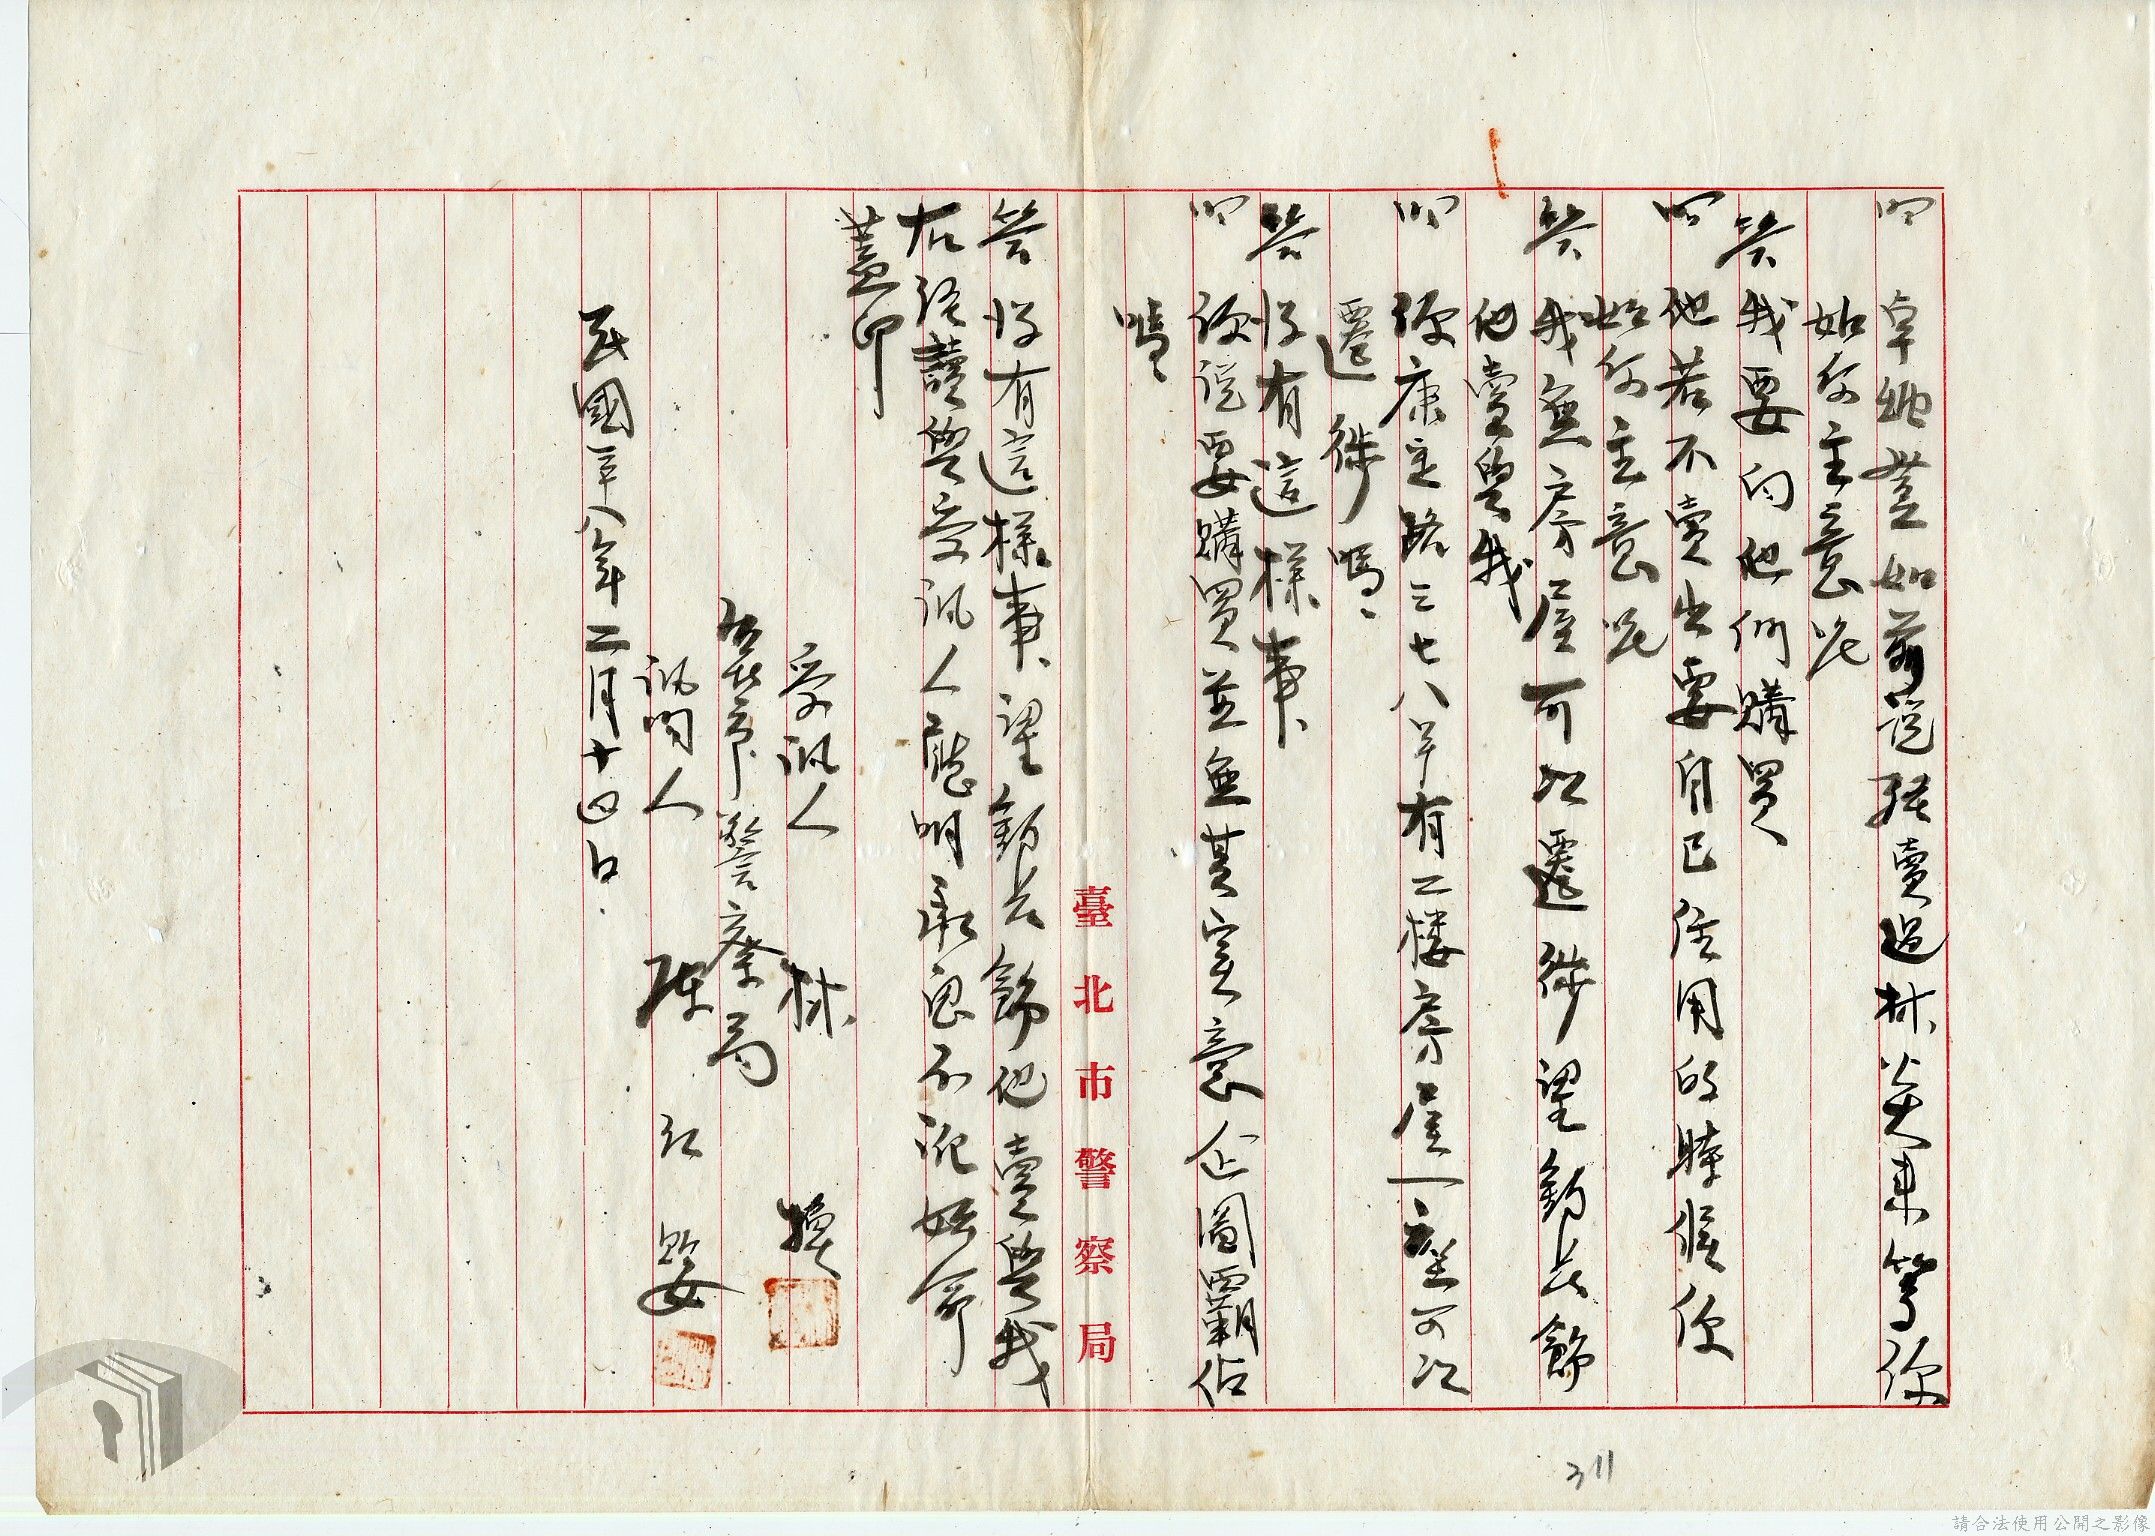 問 卓 蓋如前說經賣過林炎來等你
如何主意呢
答 我要向他們購買
問 他若不賣出要自己住用的時候你
如何主意呢
答 我無房屋可以遷徙望鈞長飭
他賣與我
問 你康定路三七八号有二楼房屋一座可以
遷徙嗎
答 沒有這樣事
問 你說要購買並無其實意企圖霸佔
嗎
答 沒有這樣事望鈞長飭他賣與我
右經讀與受訊人聽明承認不訛始命
蓋印
受訊人 林
臺北市警察局
訊問人 陳
民國三十八年二月十四日
臺北市警察局
311
請合法使用公開之影像